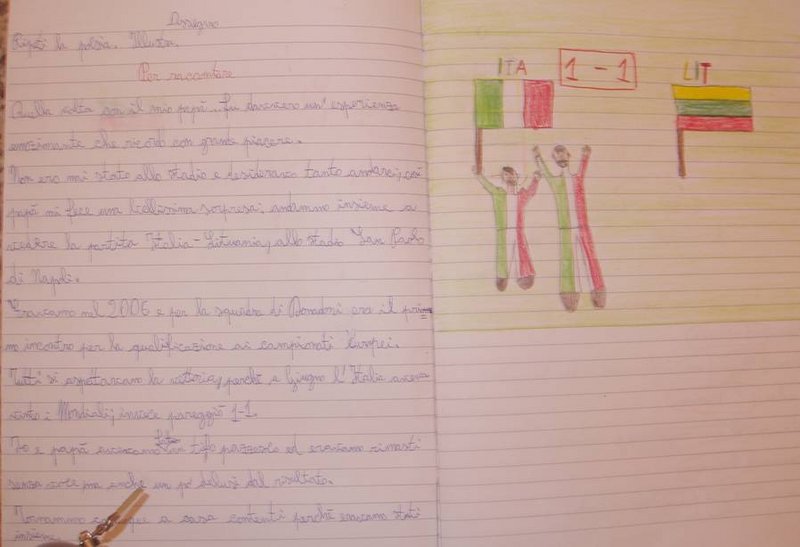 Assegno
Ripeti la poesia. Illustra.
Per raccontare
Quella volta con il mio papà... fu davvero un'esperienza
emozionante che ricordo con grande piacere.
Non ero mai stato allo stadio e desideravo tanto andarci, così
papà mi fece una bellissima sorpresa: andammo insieme a
vedere la partita Italia-Lituania, allo stadio San Paolo
di Napoli.
Eravamo nel 2006 e per la squadra di Donadoni era il pri=
mo incontro per la qualificazione ai campionati Europei.
Tutti si aspettavano la vittoria, perché a Giugno l'Italia aveva
vinto i Mondiali; invece pareggiò 1-1.
Io e papà avevamo fatto un tifo pazzesco ed eravamo rimasti
senza voce ma anche un po' delusi dal risultato.
Tornammo a casa contenti perché eravamo stati
insieme
ITA 1 - 1 LIT